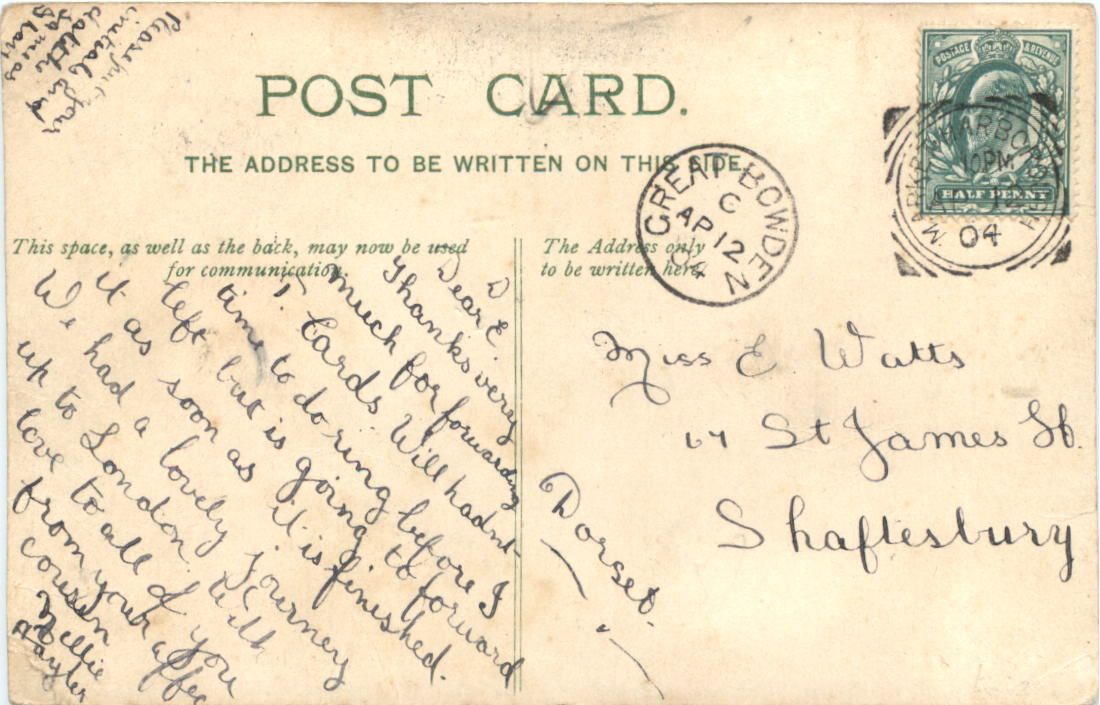 Please put your
initial and
date the
same as
POST CARD.
THE ADDRESS TO BE WRITTEN ON THIS SIDE.
POSTAGE & REVENUE
HALF PENNY
MARKET HARBOROUGH
10PM
AP 12
04
GREAT BOWDEN
C
AP 12
04
This space, as well as the back, may now be used
for communication.
The Address only
to be written here.
Dear E
Thanks very
much for forwarding
P. Cards Will hadnt
time to do ring before I
left but is going to forward
it as soon as it is finished.
We had a lovely journey
up to London. With
love to all of you
from your affec
cousin
Nellie
Hayter
Miss E. Watts
St James St.
Shaftesbury
Dorset.